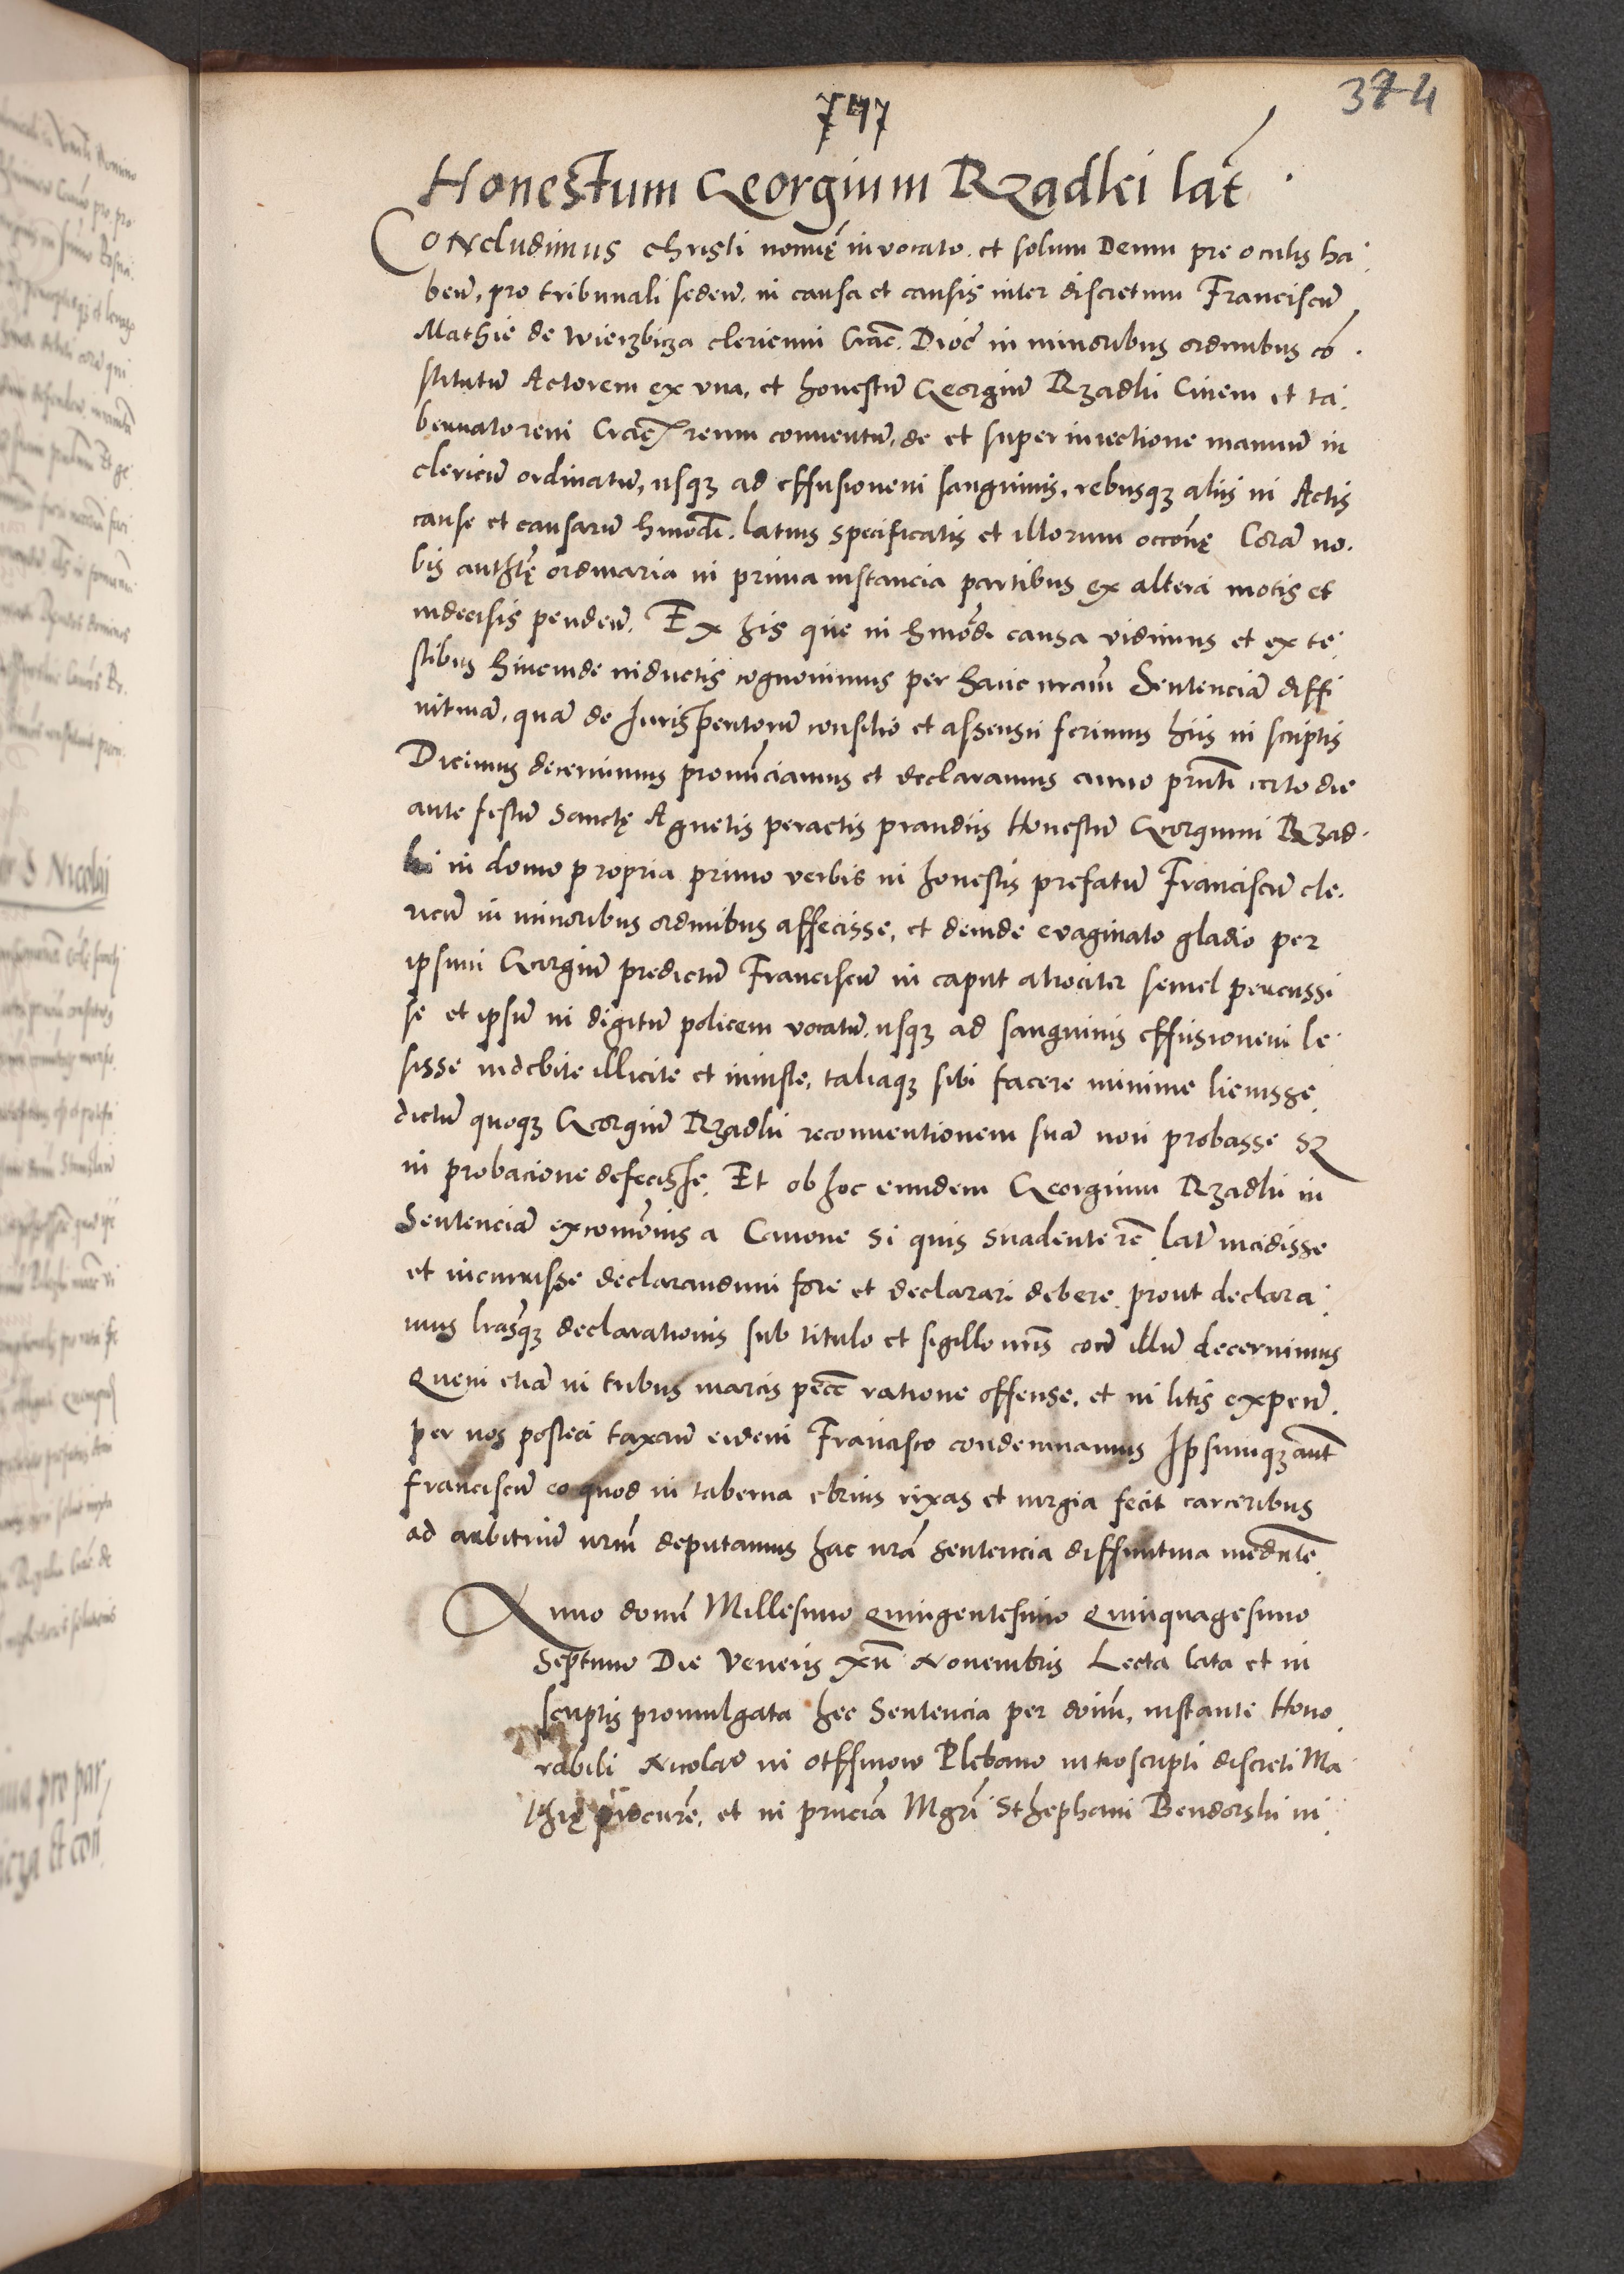 747
374
Honestum Georgium Rzadki lat̄.
Concludimus Christi noīnę invocato. et solum Deum pre oculis ha
ben̄. pro tribunali seden̄. in causa et causis inter discretum Franciscū
Mathie de wierzbicza clericum Crac̄. Dioc̄ in minoribus ordinibus cō
stitutū Actorem ex vna, et honestū Georgiū Rzadki Civem et ta
bernatorem Crac̄. reum conventū, de et super iniectione manuū in
clericū ordinatū, usqz ad effusionem sanguinis, rebusqz aliis in Actis
cause et causarū hmōdi. latius specificatis et illorum occōnę Corā no
bis authtę ordinaria in prima instancia partibus ex altera motis et
indecisis penden̄. Ex his que in hmōdi causa vidimus et ex te
stibus hincinde inductis cognovimus per hanc nram̄ Sentenciā diffi
nitivā, quā de Jurisperitorū consilio et assensu ferimus hiis in scriptis
Dicimus decernimus pronūnciamus et declaramus anno pn̄ti certo die
ante festū Sanctę Agnetis peractis prandiis Honestū Georgium Rzad
ki in domo propria primo verbis in honestis prefatū Franciscū cle
ricū in minoribus ordinibus affecisse, et deinde evaginato gladio per
ipsum Georgiū predictū Franciscū in caput atrociter semel percussi
se et ipsū in digitū policem vocatū, usqz ad sanguinis effusionem le
sisse indebite illicite et iniuste, taliaqz sibi facere minime licuisse
dictū quoqz Georgiū Rzadki reconventionem suā non probasse sz
in probacione defecisse. Et ob hoc eundem Georgium Rzadki in
Sentenciā excomōnis a Canone si quis suadente rē lat̄ incidisse
et incurrisse declarandum fore et declarari debere. prout declara
mus lrasqz declarationis sub titulo et sigillo nris̄ cotr̄ illū decernimus
Quem etiā in tribus marcis pec̄ ratione offense, et in litis expen̄.
per nos postea taxan̄ eidem Francisco condemnamus Ipsumqz aut̄
franciscū eo quod in taberna ebrius rixas et iurgia fecit carceribus
ad arbitriū nrm̄ deputamus hac nrā sentencia diffinitiva mediante
Anno domī Millesimo Quingentesimo Quinquagesimo
Septimo Die Veneris xii Novembris Lecta lata et in
scriptis promulgata hec Sentencia per doim̄, instante Hono
rabili Nicolao in Plebano introscripti discreti Ma
thię procurē. et in pn̄ciā Mgri Sthephani Bendorski in